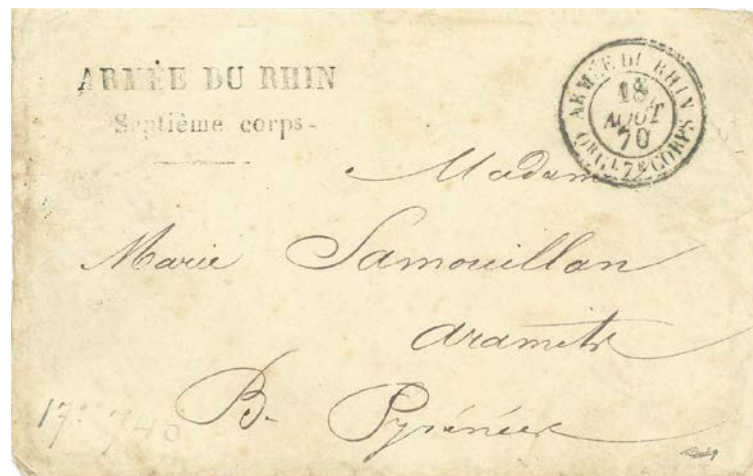 ARMÉE DU RHIN
Septième corps-
ARMÉE DU RHIN
18
AOUT
70
7E CORPS
Madame
Marie Samouillan
Aramits
B- Pyrénées
17· 740